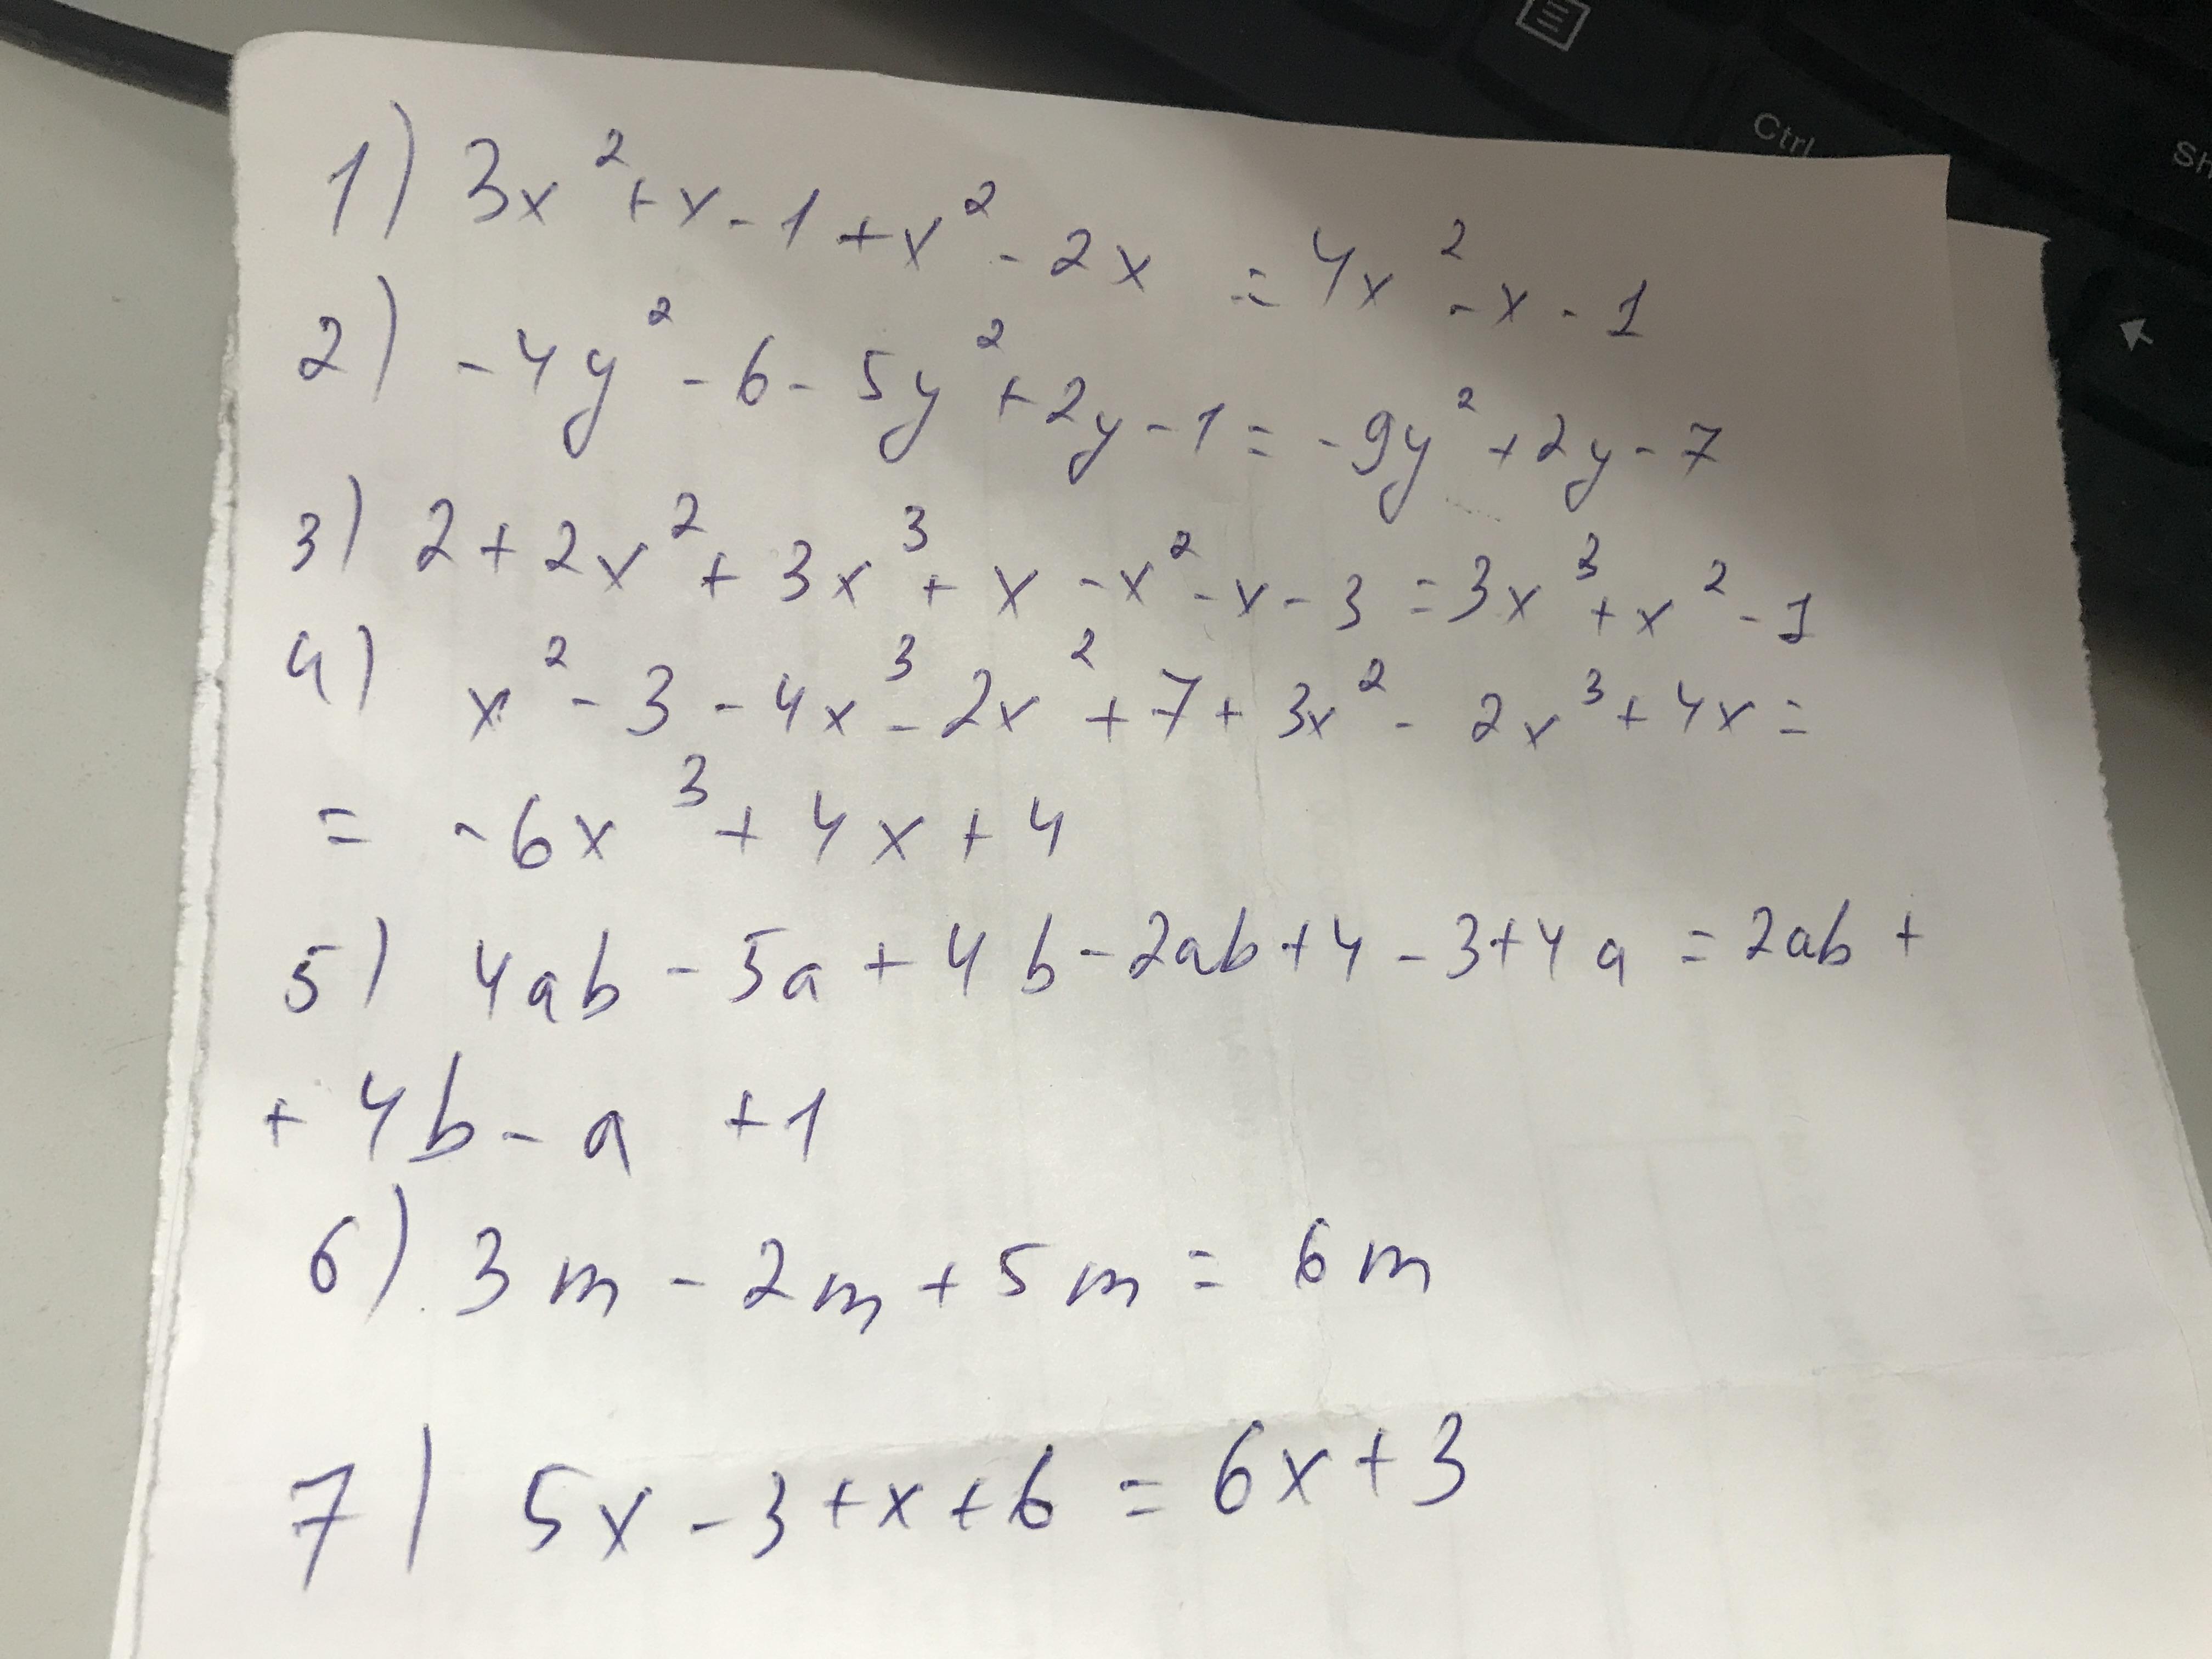 Ctrl
Sh
1) 3x² + x - 1 + x² - 2x = 4x² - x - 1
2) -4y² - 6 - 5y² + 2y - 1 = -9y² + 2y - 7
3) 2 + 2x² + 3x³ + x - x² - x - 3 = 3x³ + x² - 1
4) x² - 3 - 4x³ - 2x² + 7 + 3x² - 2x³ + 4x =
= -6x³ + 4x + 4
5) 4ab - 5a + 4b - 2ab + 4 - 3 + 4a = 2ab +
+ 4b - a + 1
6) 3m - 2m + 5m = 6m
7) 5x - 3 + x + 6 = 6x + 3